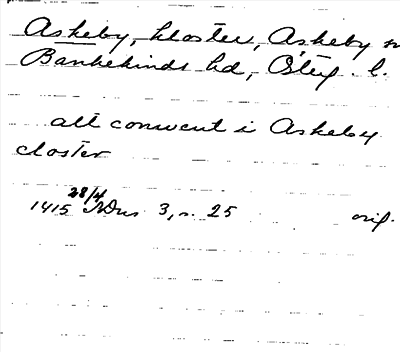 Askeby, kloster, Askeby sn
Bankekinds hd, Östg. l.
alt conuent i Askeby
closter
28/4
1415 SDns 3, n. 25 orig.